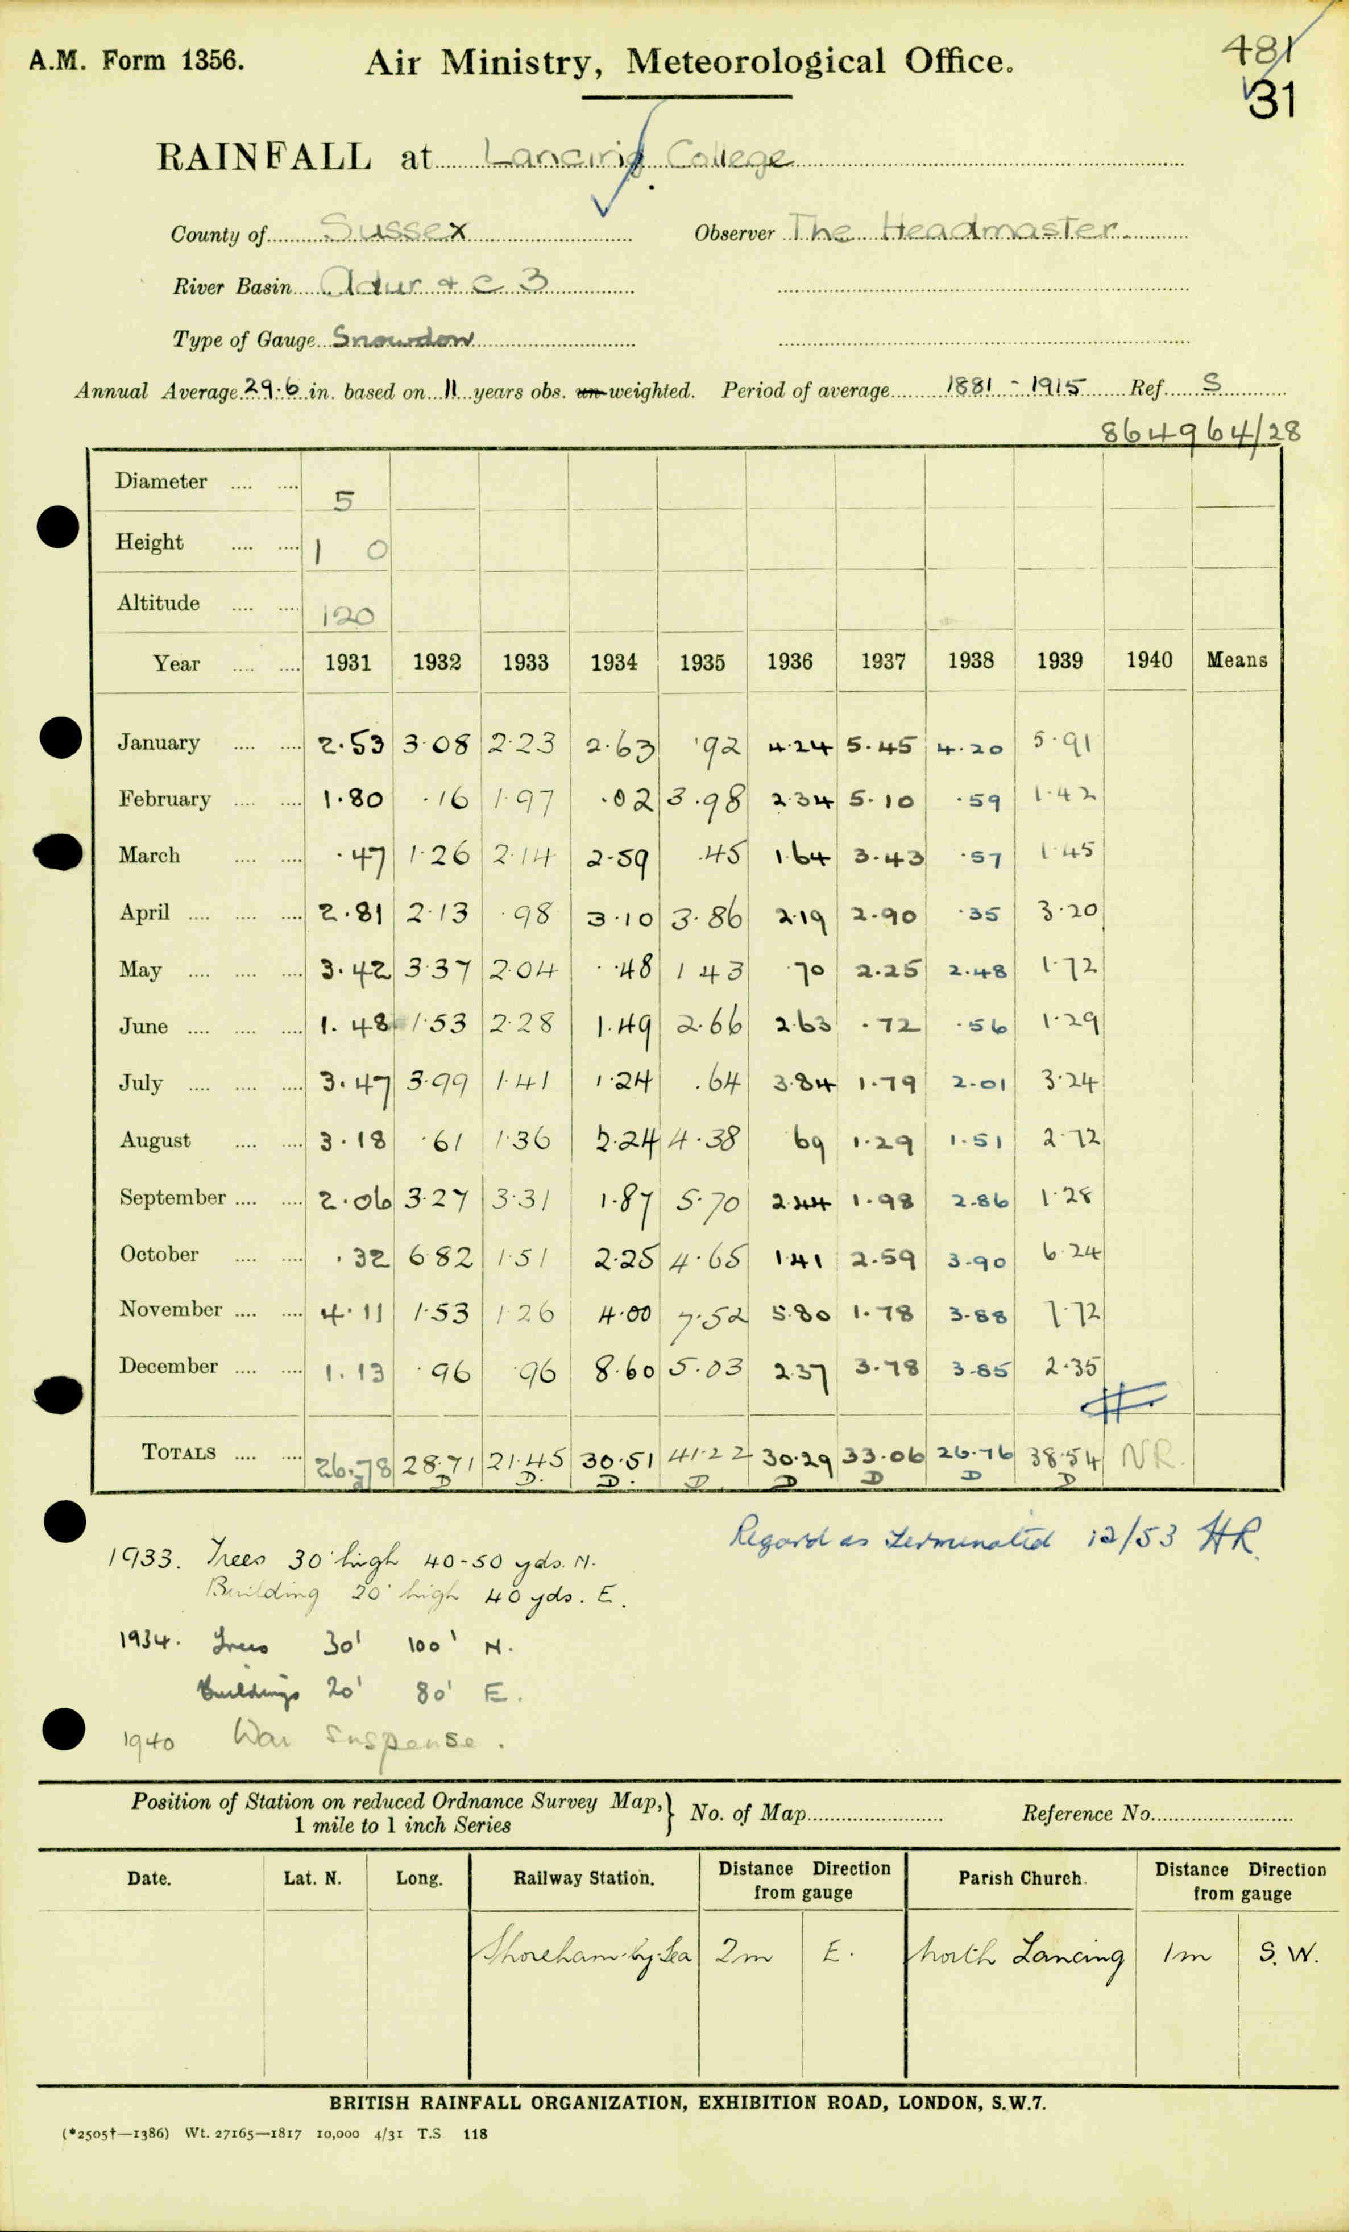 A.M. Form 1356.
Air Ministry, Meteorological Office.
481
31
RAINFALL at Lancing College
County of Sussex Observer The Headmaster
River Basin Adur + c 3
Type of Gauge Snowdon
Annual Average 29.6 in. based on 11 years obs. un-weighted. Period of average 1881 - 1915 Ref. S
864964/28
Diameter .... .... 5
Height .... .... 1 0
Altitude .... .... 120
Year .... .... 1931 1932 1933 1934 1935 1936 1937 1938 1939 1940 Means
January .... .... 2.53 3.08 2.23 2.63 .92 4.24 5.45 4.20 5.91
February .... .... 1.80 .16 1.97 .02 3.98 2.34 5.10 .59 1.42
March .... .... .47 1.26 2.14 2.59 .45 1.64 3.43 .57 1.45
April .... .... .... 2.81 2.13 .98 3.10 3.86 2.19 2.90 .35 3.20
May .... .... .... 3.42 3.37 2.04 .48 1 43 .70 2.25 2.48 1.72
June .... .... .... 1.48 1.53 2.28 1.49 2.66 2.63 .72 .56 1.29
July .... .... .... 3.47 3.99 1.41 1.24 .64 3.84 1.79 2.01 3.24
August .... .... 3.18 .61 1.36 2.24 4.38 69 1.29 1.51 2.72
September .... .... 2.06 3.27 3.31 1.87 5.70 2.44 1.98 2.86 1.28
October .... .... .32 6.82 1.51 2.25 4.65 1.41 2.59 3.90 6.24
November .... .... 4.11 1.53 1.26 4.00 7.52 5.80 1.78 3.88 7.72
December .... .... 1.13 .96 .96 8.60 5.03 2.37 3.78 3.85 2.35
TOTALS .... .... 26.78 28.71 21.45 30.51 41.22 30.29 33.06 26.76 38.54 NR.
D D. D. D. D D D D
Regard as terminated 12/53 HR.
1933. Trees 30' high 40-50 yds. N.
Building 20' high 40 yds. E.
1934. Trees 30' 100' N.
Buildings 20' 80' E.
1940 War Suspense.
Position of Station on reduced Ordnance Survey Map,} No. of Map Reference No.
1 mile to 1 inch Series
Date. Lat. N. Long. Railway Station. Distance Direction from gauge Parish Church. Distance Direction from gauge
Shoreham-by-Sea 2m E. North Lancing 1m S.W.
BRITISH RAINFALL ORGANIZATION, EXHIBITION ROAD, LONDON, S.W.7.
(*2505†—1386) Wt. 27165—1817 10,000 4/31 T.S. 118